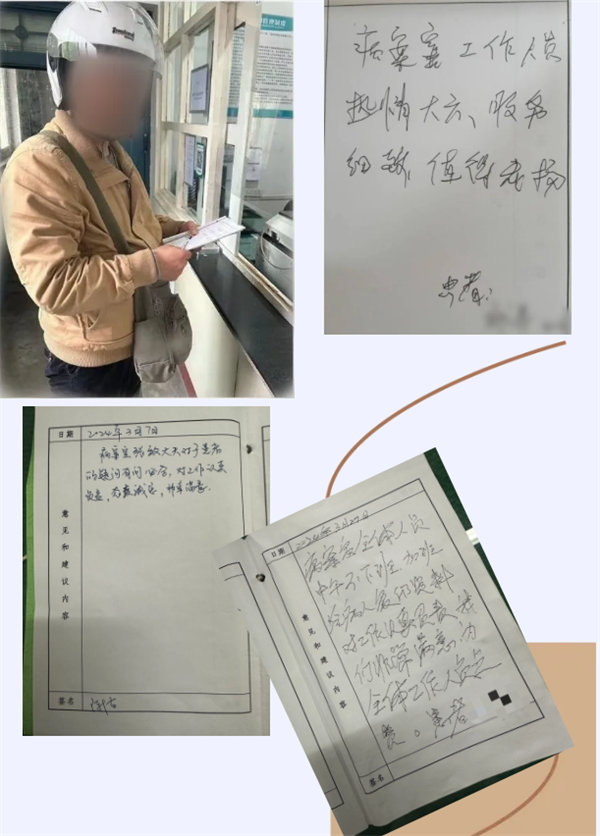 病案室工作人员
热情大方、服务
细致值得表扬
患者:
日期 2024年3月7日
病案室 大夫对于患者
的疑问有问必答,对工作认真
负责,非常满意.
意见和建议内容
签名
日期 2024年3月27日
病案室全体人员
中午不下班 加班
给病人复印资料
对工作认真负责 我
们非常满意,为
全体工作人员点
赞。患者
意见和建议内容
签名